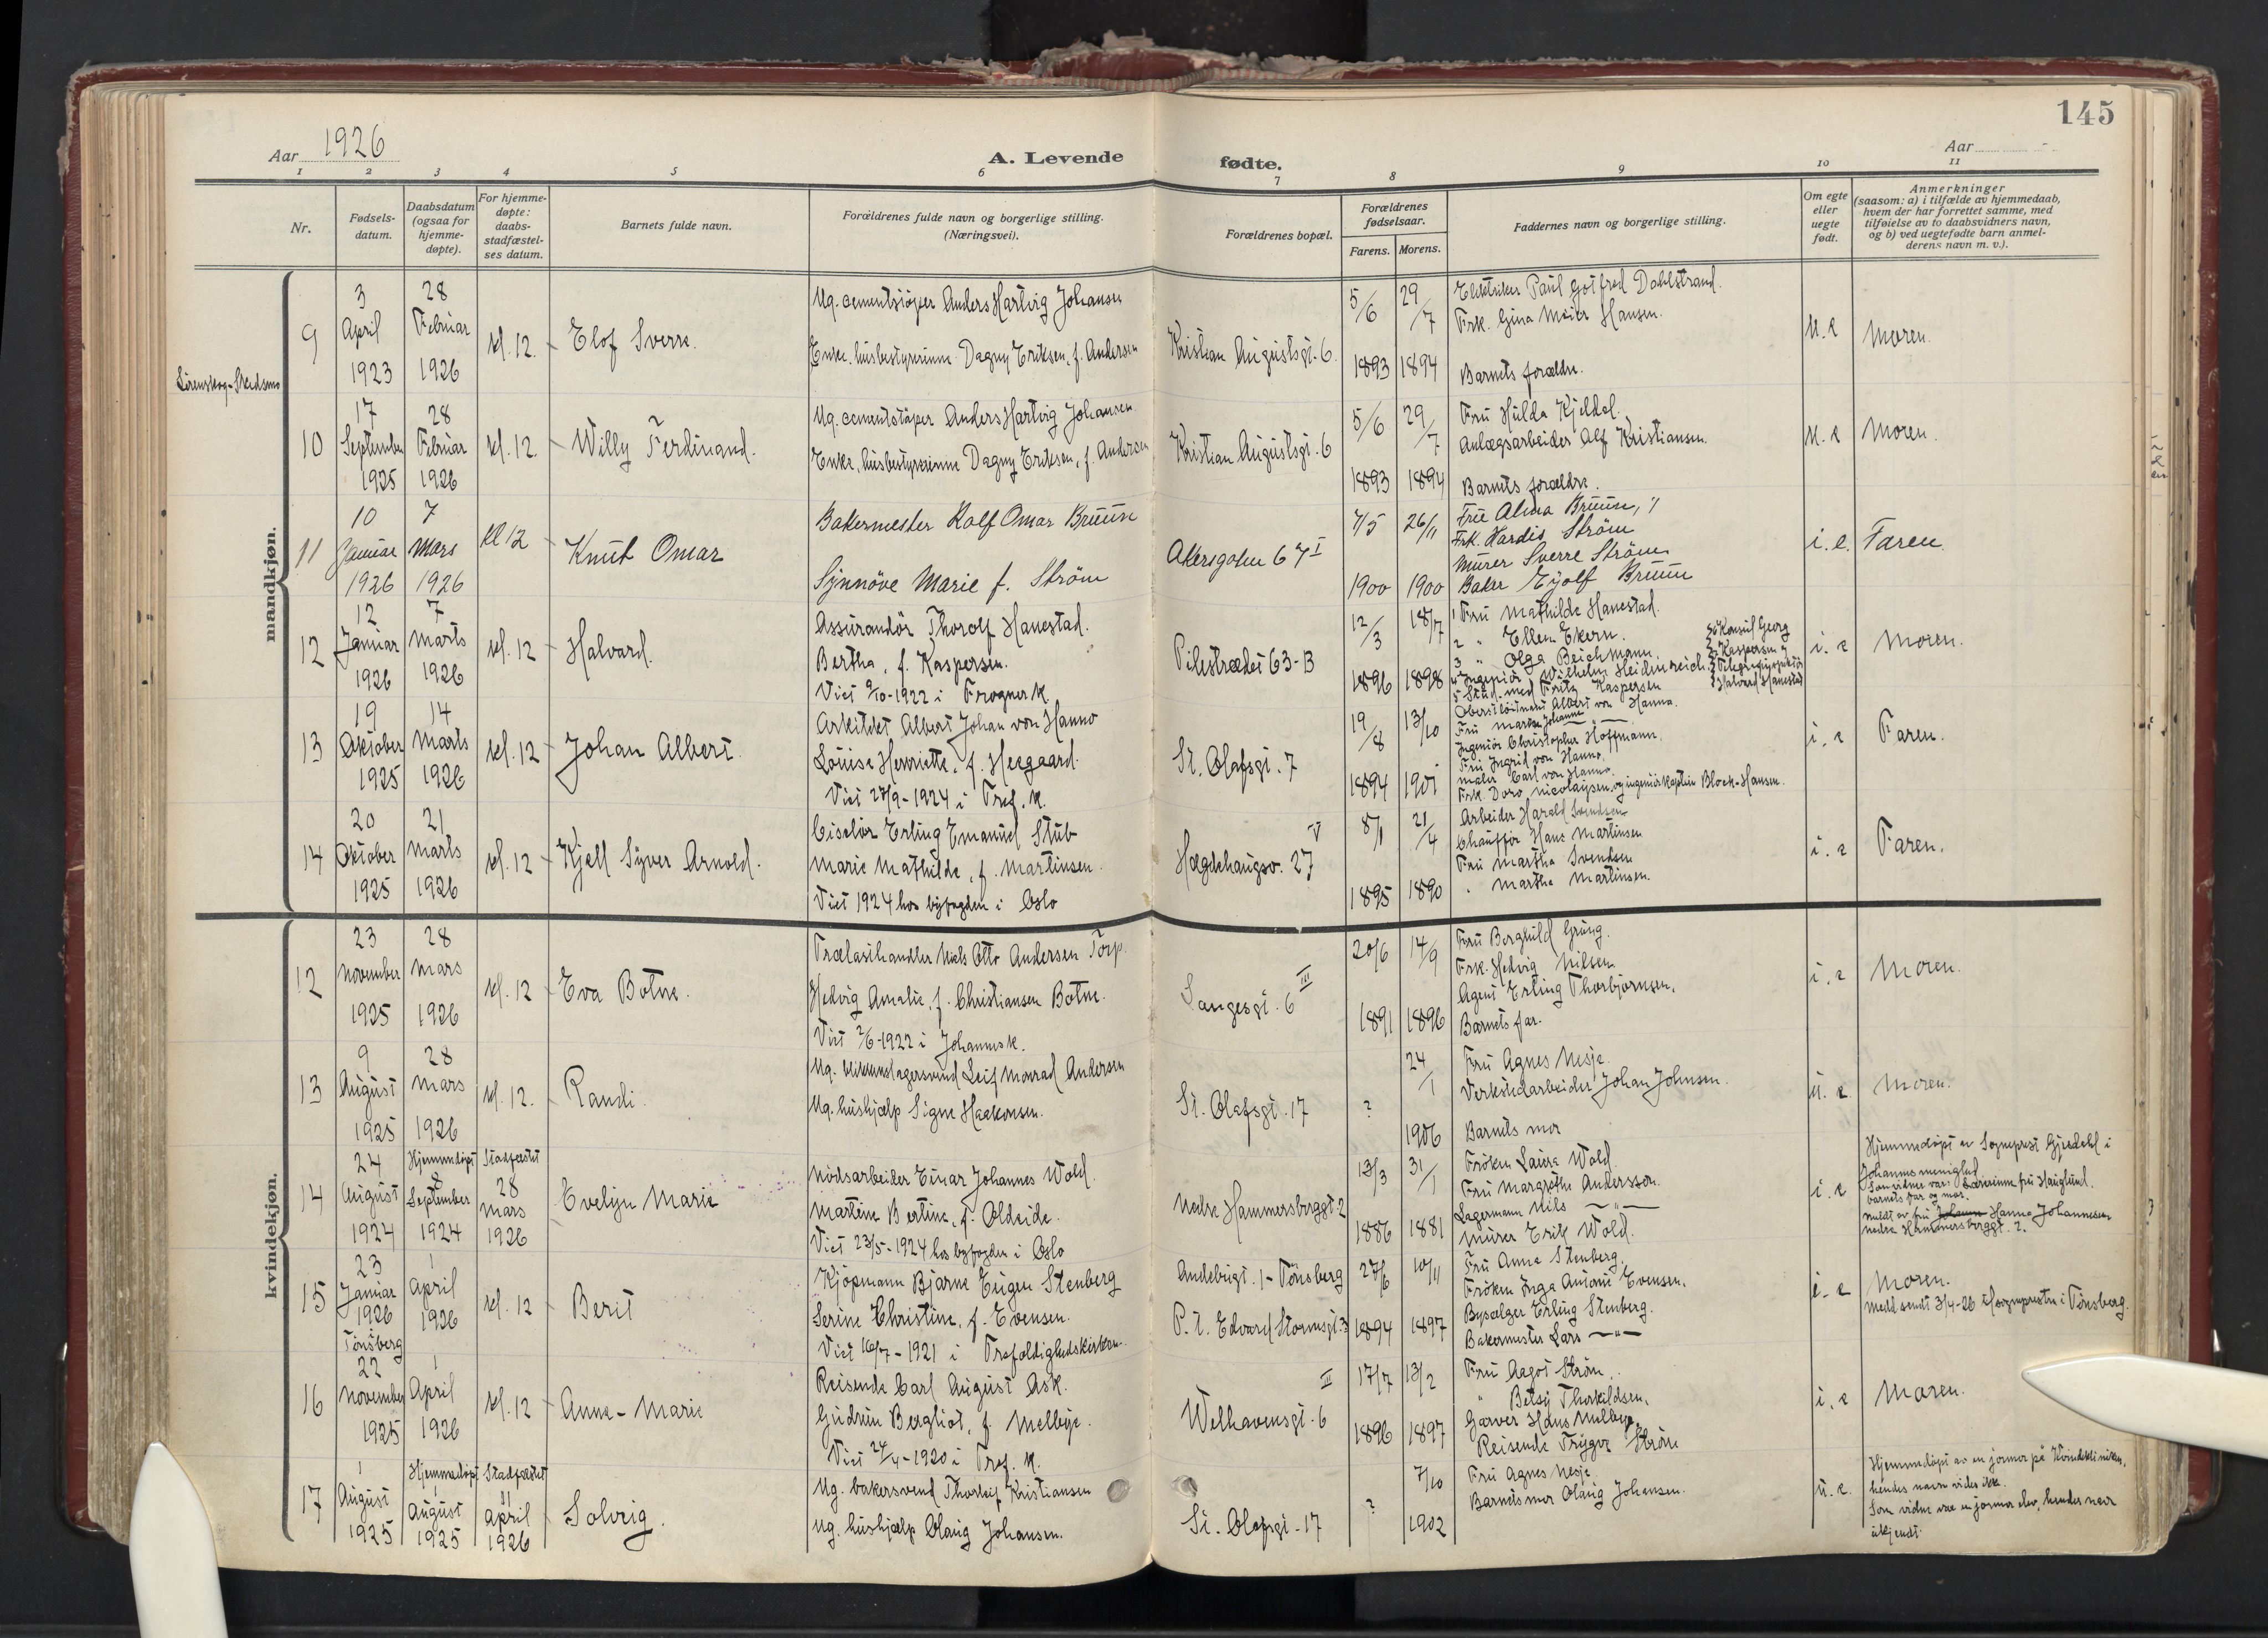 145
Aar 1926
A. Levende fødte.
Aar
1 2 3 4 5 6 7 8 9 10 11
Nr.
Fødsels-
datum.
Daabsdatum
(ogsaa for
hjemme-
døpte).
For hjemme-
døpte:
daabs-
stadfæstel-
ses datum.
Barnets fulde navn.
Forældrenes fulde navn og borgerlige stilling.
(Næringsvei).
Forældrenes bopæl.
Forældrenes
fødselsaar.
Farens. Morens.
Faddernes navn og borgerlige stilling.
Om egte
eller
uegte
født.
Anmerkninger
(saasom: a) i tilfælde av hjemmedaab,
hvem der har forrettet samme, med
tilføielse av to daabsvidners navn,
og b) ved uegtefødte barn anmel-
derens navn m. v.).
mandkjøn.
9
3
April
1923
Lørenskog-Skedsmo
28
Februar
1926
kl. 12.
Elof Sverre.
Ug. cementstöper Anders Hartvig Johansen
Enke. husbestyrerinne Dagny Eriksen, f. Andersen
Kristian Augustsgt. 6.
5/6
1893
29/7
1894
Elektriker Paul Gotfred Dahlstrand.
Frk. Gina Meier Hansen.
Barnets forældre.
u. e
Moren.
10
17
September
1925
28
Februar
1926
kl. 12.
Willy Ferdinand.
Ug. cementstöper Anders Hartvig Johansen.
Enke, husbestyrerinne Dagny Eriksen, f. Andersen
Kristian Augustsgt. 6
5/6
1893
29/7
1894
Fru Hulda Kjeldal.
Anlægsarbeider Alf Kristiansen.
Barnets forældre.
u. e
Moren.
11
10
Januar
1926
7
Mars
1926
kl 12
Knut Omar
Bakermester Rolf Omar Bruun
Synnöve Marie f. Ström
Akersgaten 67 I
7/5
1900
26/11
1900
Frue Alma Bruun,
Frk. Hardis Ström
Murer Sverre Ström
Baker Eyolf Bruun
i. e.
Faren.
12
12
Januar
1926
7
Marts
1926
kl. 12
Halvard.
Assurandör Thorolf Hanestad.
Bertha, f. Kaspersen.
Viet 9/10-1922 i Frogner K.
Pilestrædet 63-B
12/3
1896
18/7
1898
1 Fru Mathilde Hanestad.
2 " Ellen Ekern.
3 " Olga Beichmann.
4 Ingeniör Wilhelm Heidenreich.
5 Stud. med Fritz Kaspersen
6 Konsul Georg
Kaspersen
Halvard Hanestad
i. e
Moren.
13
19
Oktober
1925
14
Marts
1926
kl. 12
Johan Albert.
Arkitekt Albert Johan von Hanno
Louise Henriette, f. Heegaard.
Viet 27/9-1924 i Tref. K.
St. Olafsgt. 7
19/8
1894
13/10
1901
Oberstlöitnant Albert von Hanno.
Fru Marie Johanne —"—
Ingeniör Christopher Hoffmann.
Fru Ingrid von Hanno.
Maler Carl von Hanno.
Frk. Doro Nicolaysen, og ingeniörkaptein Block-Hansen.
i. e
Faren.
14
20
Oktober
1925
21
Marts
1926
kl. 12
Kjell Syver Arnold.
Ciselör Erling Emanuel Stub
Marie Mathilde, f. Martinsen.
Viet 1924 hos byfogden i Oslo
Hægdehaugsv. 27 V
8/1
1895
21/4
1890
Arbeider Harald Svendsen
Chaufför Hans Martinsen
Fru Martha Svendsen
" Martha Martinsen.
i. e
Faren.
kvindekjøn.
12
23
November
1925
28
Mars
1926
kl. 12
Eva Botne.
Trælasthandler Niels Otto Andersen Torp.
Hedvig Amalie, f. Christiansen Botne.
Viet 2/6-1922 i Johannesk.
Langesgt. 6 III
20/6
1891
14/9
1896
Fru Berghild Gräng.
Frk. Hedvig Nilsen
Agent Erling Thorbjörnsen.
Barnets far.
i. e
Moren.
13
9
August
1925
28
Mars
1926
kl. 12.
Randi.
Ug. blikkenslagersvend Leif Monrad Andersen
Ug. hushjælp Signe Haakonsen.
St. Olafsgt. 17
?
24/1
1906
Fru Agnes Nesje.
Verkstedarbeider Johan Johnsen.
Barnets mor
u. e.
Moren.
14
24
August
1924
Hjemmedöpt
8
September
1924
Stadfestet
28
Mars
1926
Evelyn Marie
Nödsarbeider Einar Johannes Wold.
Martine Bertine, f. Oldeide.
Viet 23/5-1924 hos byfogden i Oslo
Nedre Hammersborggt. 2
13/3
1886
31/1
1881
Fröken Laura Wold
Fru Margrethe Andersson.
Lagermann Nils —"—
Murer Erik Wold.
i. e
Hjemmedöpt av Sogneprest Gjerdahl i
Johannes menighet.
Som vidner var: Lærerinne fru Hauglund.
barnets far og mor.
Meldt av fru Hanna Johannesen
Nedre Hammersborggt. 2.
15
23
Januar
1926
Tönsberg
1
April
1926
kl. 12
Berit
Kjöpmann Bjarne Eugen Stenberg
Serine Christine, f. Evensen.
Viet 16/7-1921 i Trefoldighedskirken.
Andebugt. 1-Tönsberg
P. t. Edvard Stormsgt. 3
27/6
1894
10/11
1897
Fru Anna Stenberg.
Fröken Inga Antonie Evensen.
Bysælger Erling Stenberg.
Bakermester Lars —"—
i. e
Moren.
Medd. sendt 3/4-26 til sogneprsten i Tönsberg.
16
22
November
1925
1
April
1926
kl. 12
Anne-Marie
Reisende Carl August Ask.
Gudrun Bergliot, f. Melbye.
Viet 24/4-1920 i Tref. K.
Welhavensgt. 6 III
17/7
1896
13/2
1897
Fru Aagot Ström.
" Betsy Thorkildsen.
Garver Hans Melbye.
Reisende Trygve Ström
i. e
Moren.
17
1
August
1925
Hjemmedöpt
1
August
1925
Stadfestet
11
April
1926
Solveig.
Ug. bakersvend Thorleif Kristiansen
Ug. hushjælp Olaug Johansen.
St. Olafsgt-17
?
7/10
1902
Fru Agnes Nesje.
Barnets mor Olaug Johansen.
u. e.
Hjemmedöpt av en jormor på Kvindeklinikken,
hendes navn vides ikke.
Som vidne var en jormor elev, hendes navn
ukjendt.